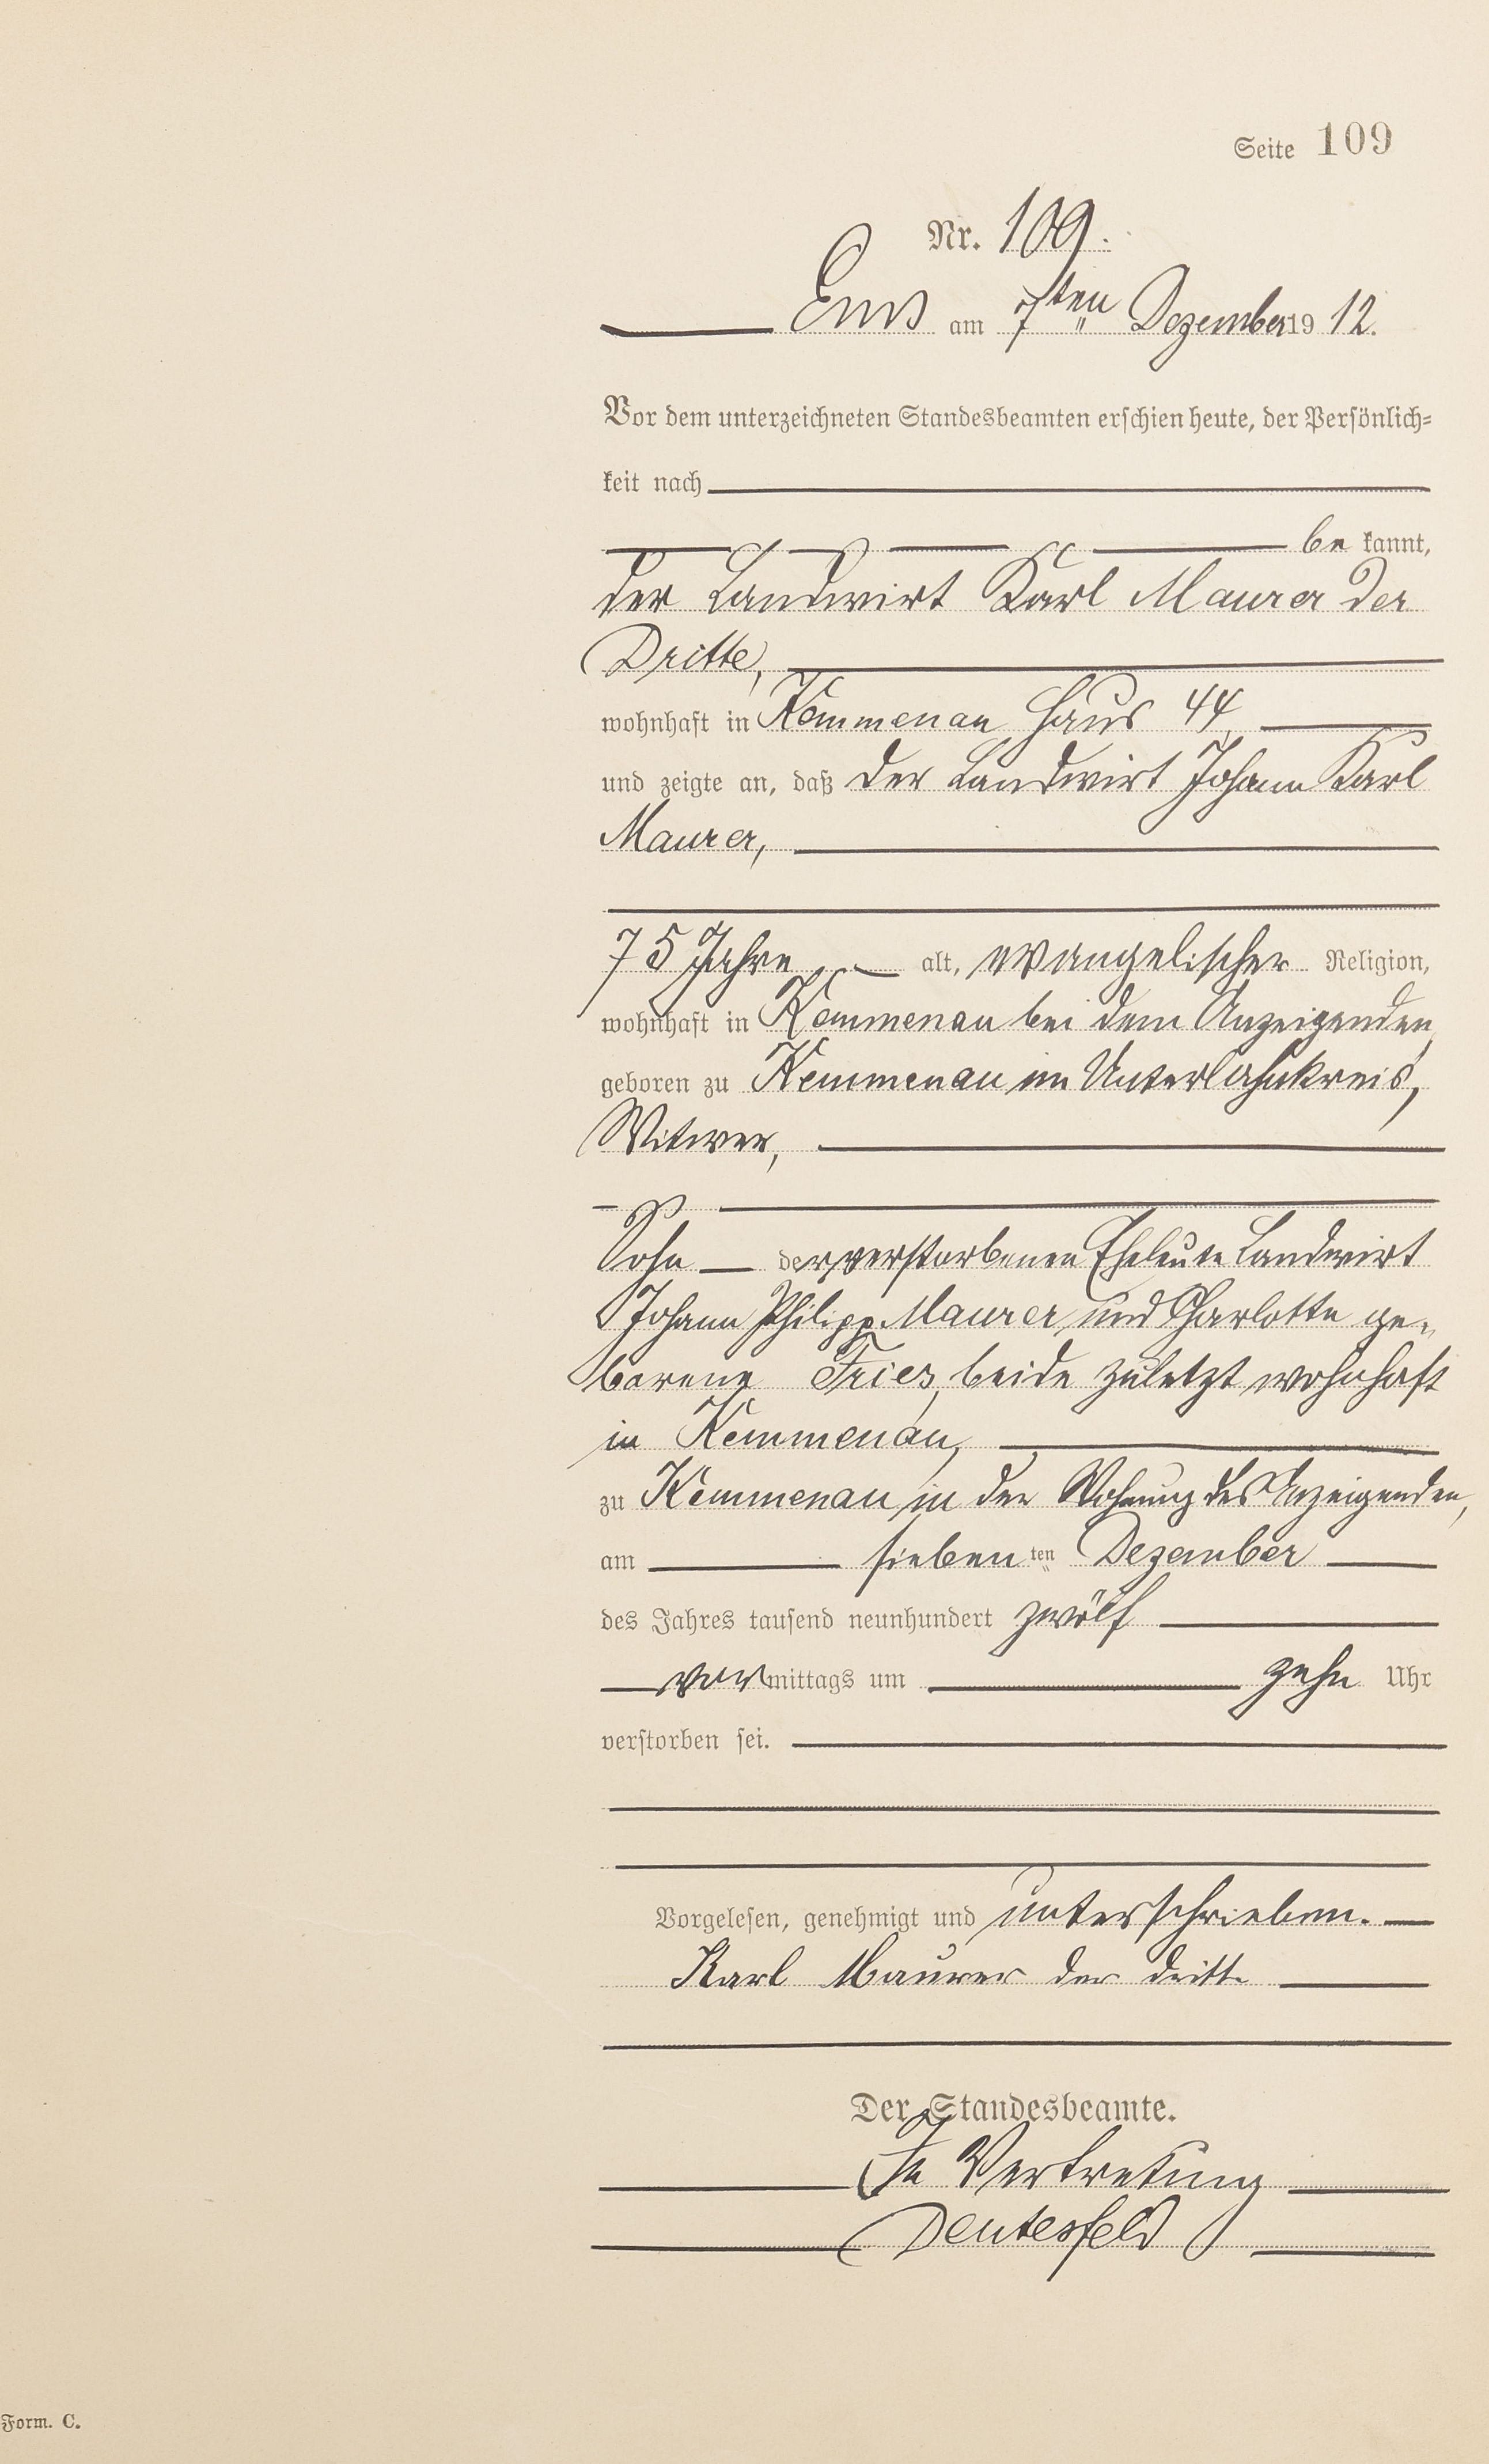 Seite 109
Nr. 109.
Ems am 7ten Dezember 1912.
Vor dem unterzeichneten Standesbeamten erschien heute, der Persönlich-
keit nach
be kannt,
der Landwirt Karl Maurer der
Dritte,
wohnhaft in Kemmenau Haus 44,
und zeigte an, daß der Landwirt Johann Karl
Maurer,
75 Jahre alt, evangelischer Religion,
wohnhaft in Kemmenau bei dem Anzeigenden,
geboren zu Kemmenau im Unterlahnkreis,
Witwer,
Sohn der verstorbenen Eheleute Landwirt
Johann Philipp Maurer und Charlotte ge-
borene Fries, beide zuletzt wohnhaft
in Kemmenau,
zu Kemmenau in der Wohnung des Anzeigenden,
am sieben ten Dezember
des Jahres tausend neunhundert zwölf
vormittags um zehn Uhr
verstorben sei.
Vorgelesen, genehmigt und unterschrieben.
Karl Maurer der dritte
Der Standesbeamte.
In Vertretung
Deutesfeld
Form. C.